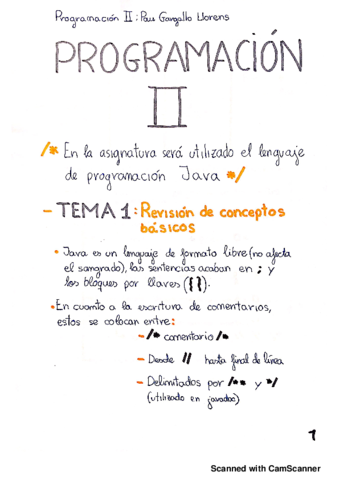 Programación II: Pau Gargallo Llorens
PROGRAMACIÓN
II
/* En la asignatura será utilizado el lenguaje
de programación Java */
- TEMA 1: Revisión de conceptos
básicos
• Java es un lenguaje de formato libre (no afecta
el sangrado), las sentencias acaban en ; y
los bloques por llaves ({ }).
• En cuanto a la escritura de comentarios,
estos se colocan entre:
- /* comentario /*
- Desde // hasta final de línea
- Delimitados por /** y */
(utilizado en javadoc)
1
Scanned with CamScanner